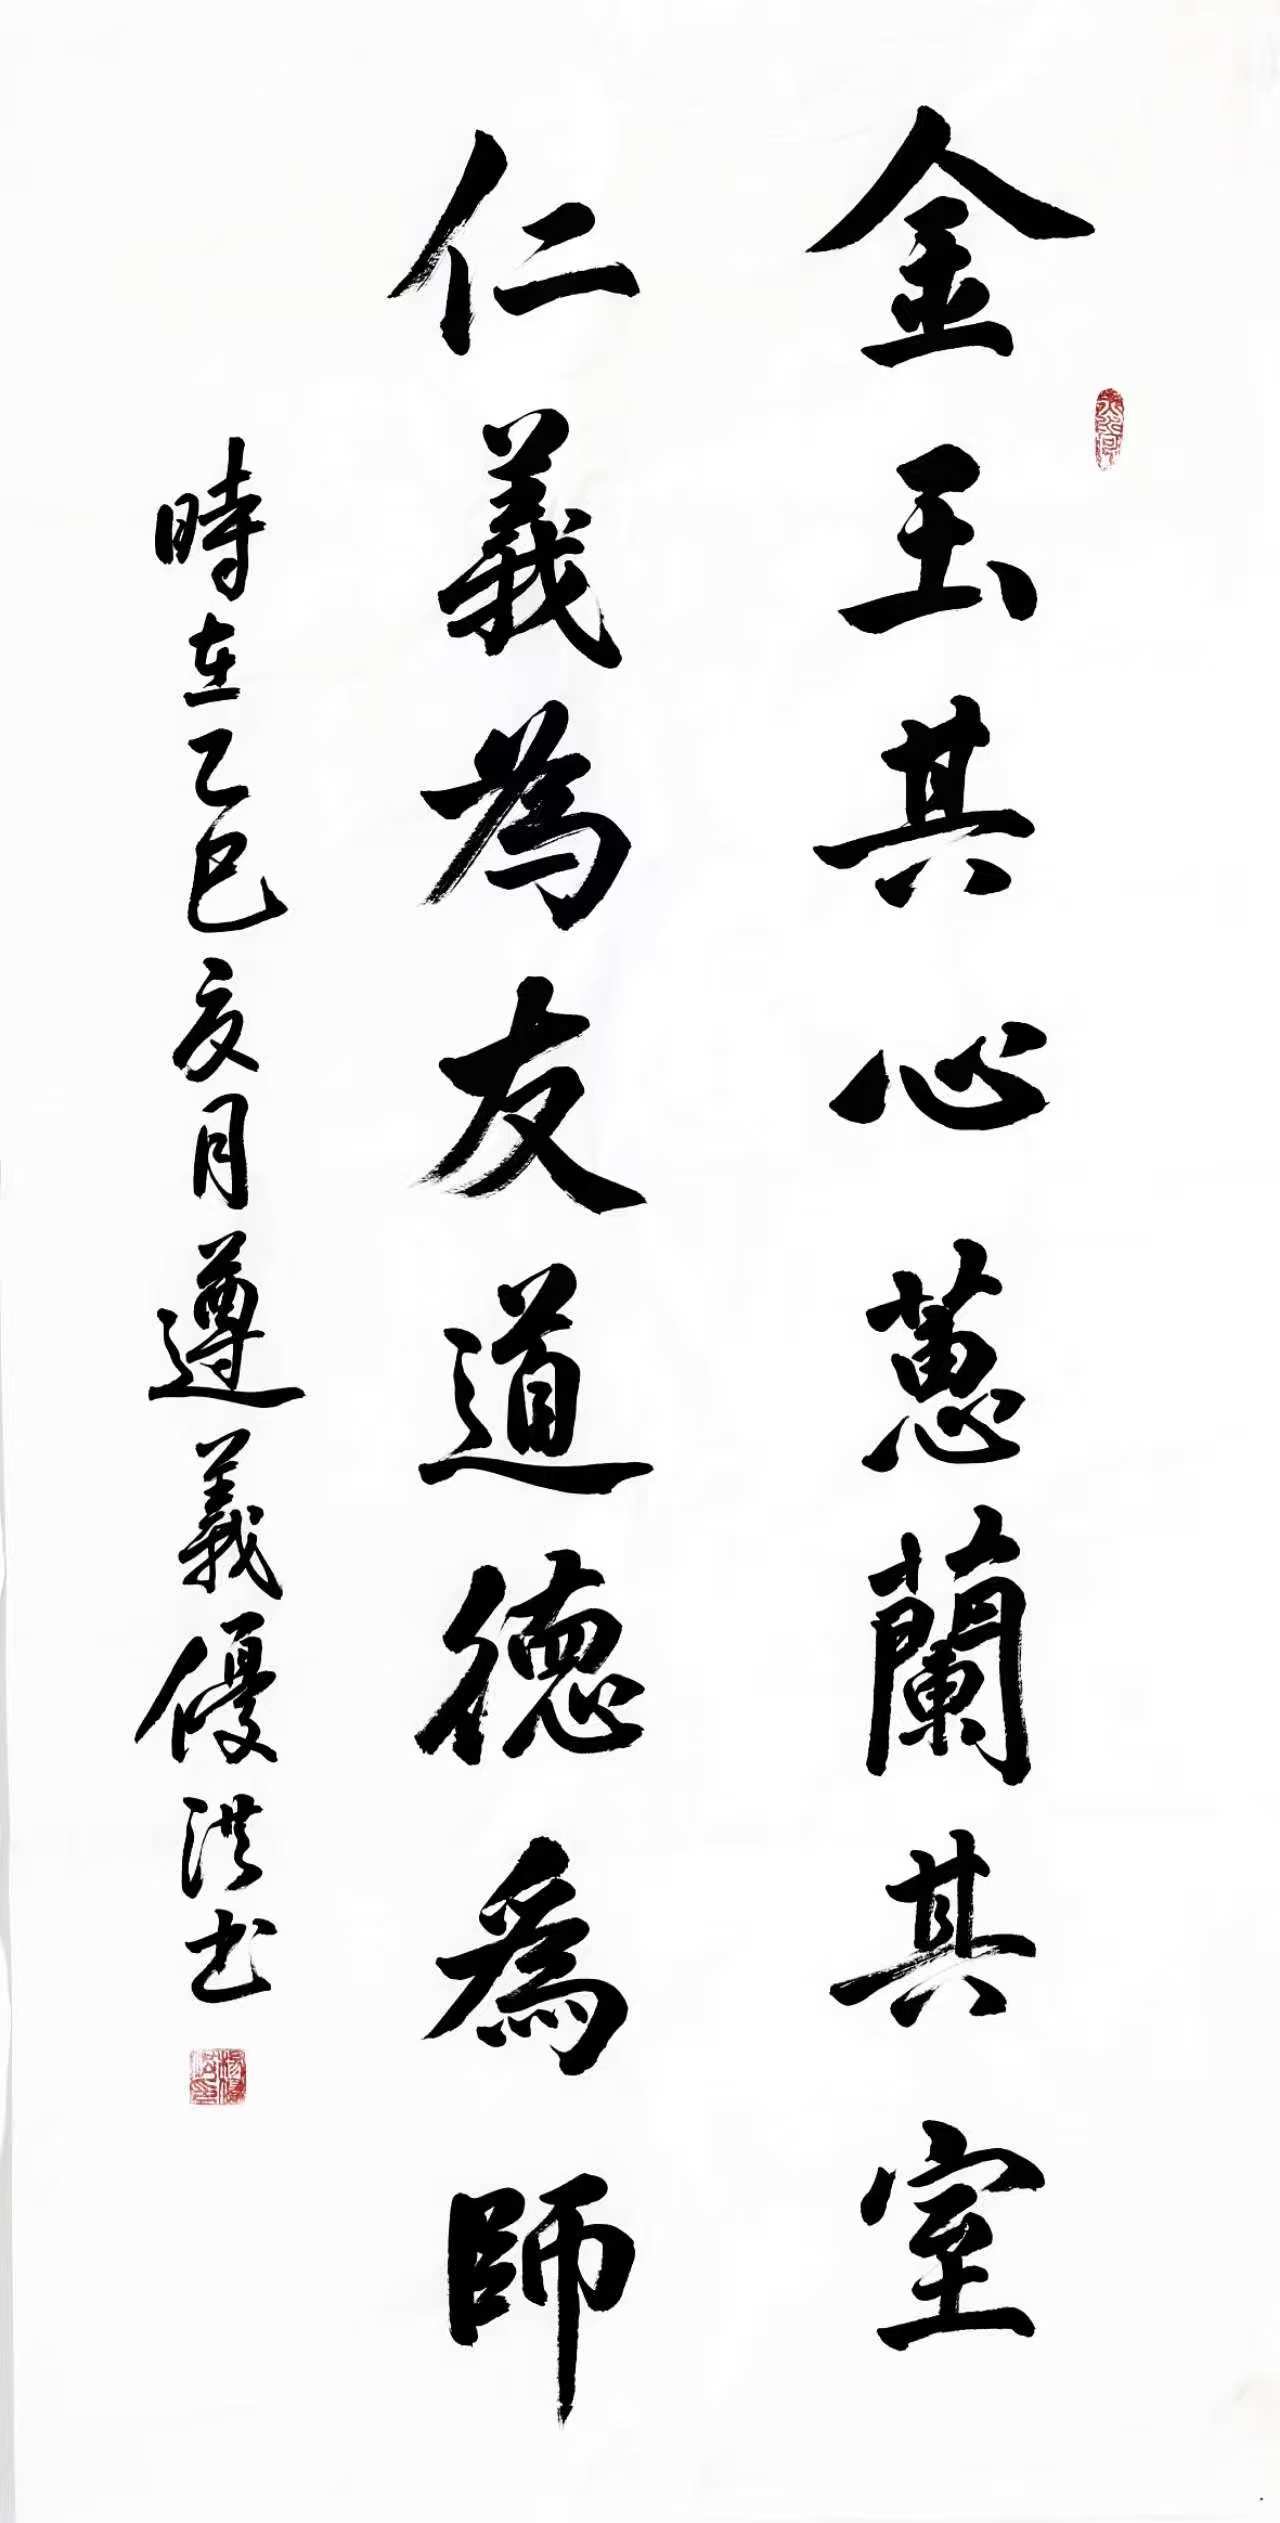 金玉其心蕙蘭其室
仁義為友道德為師
時在乙巳亥月遵義優洪书